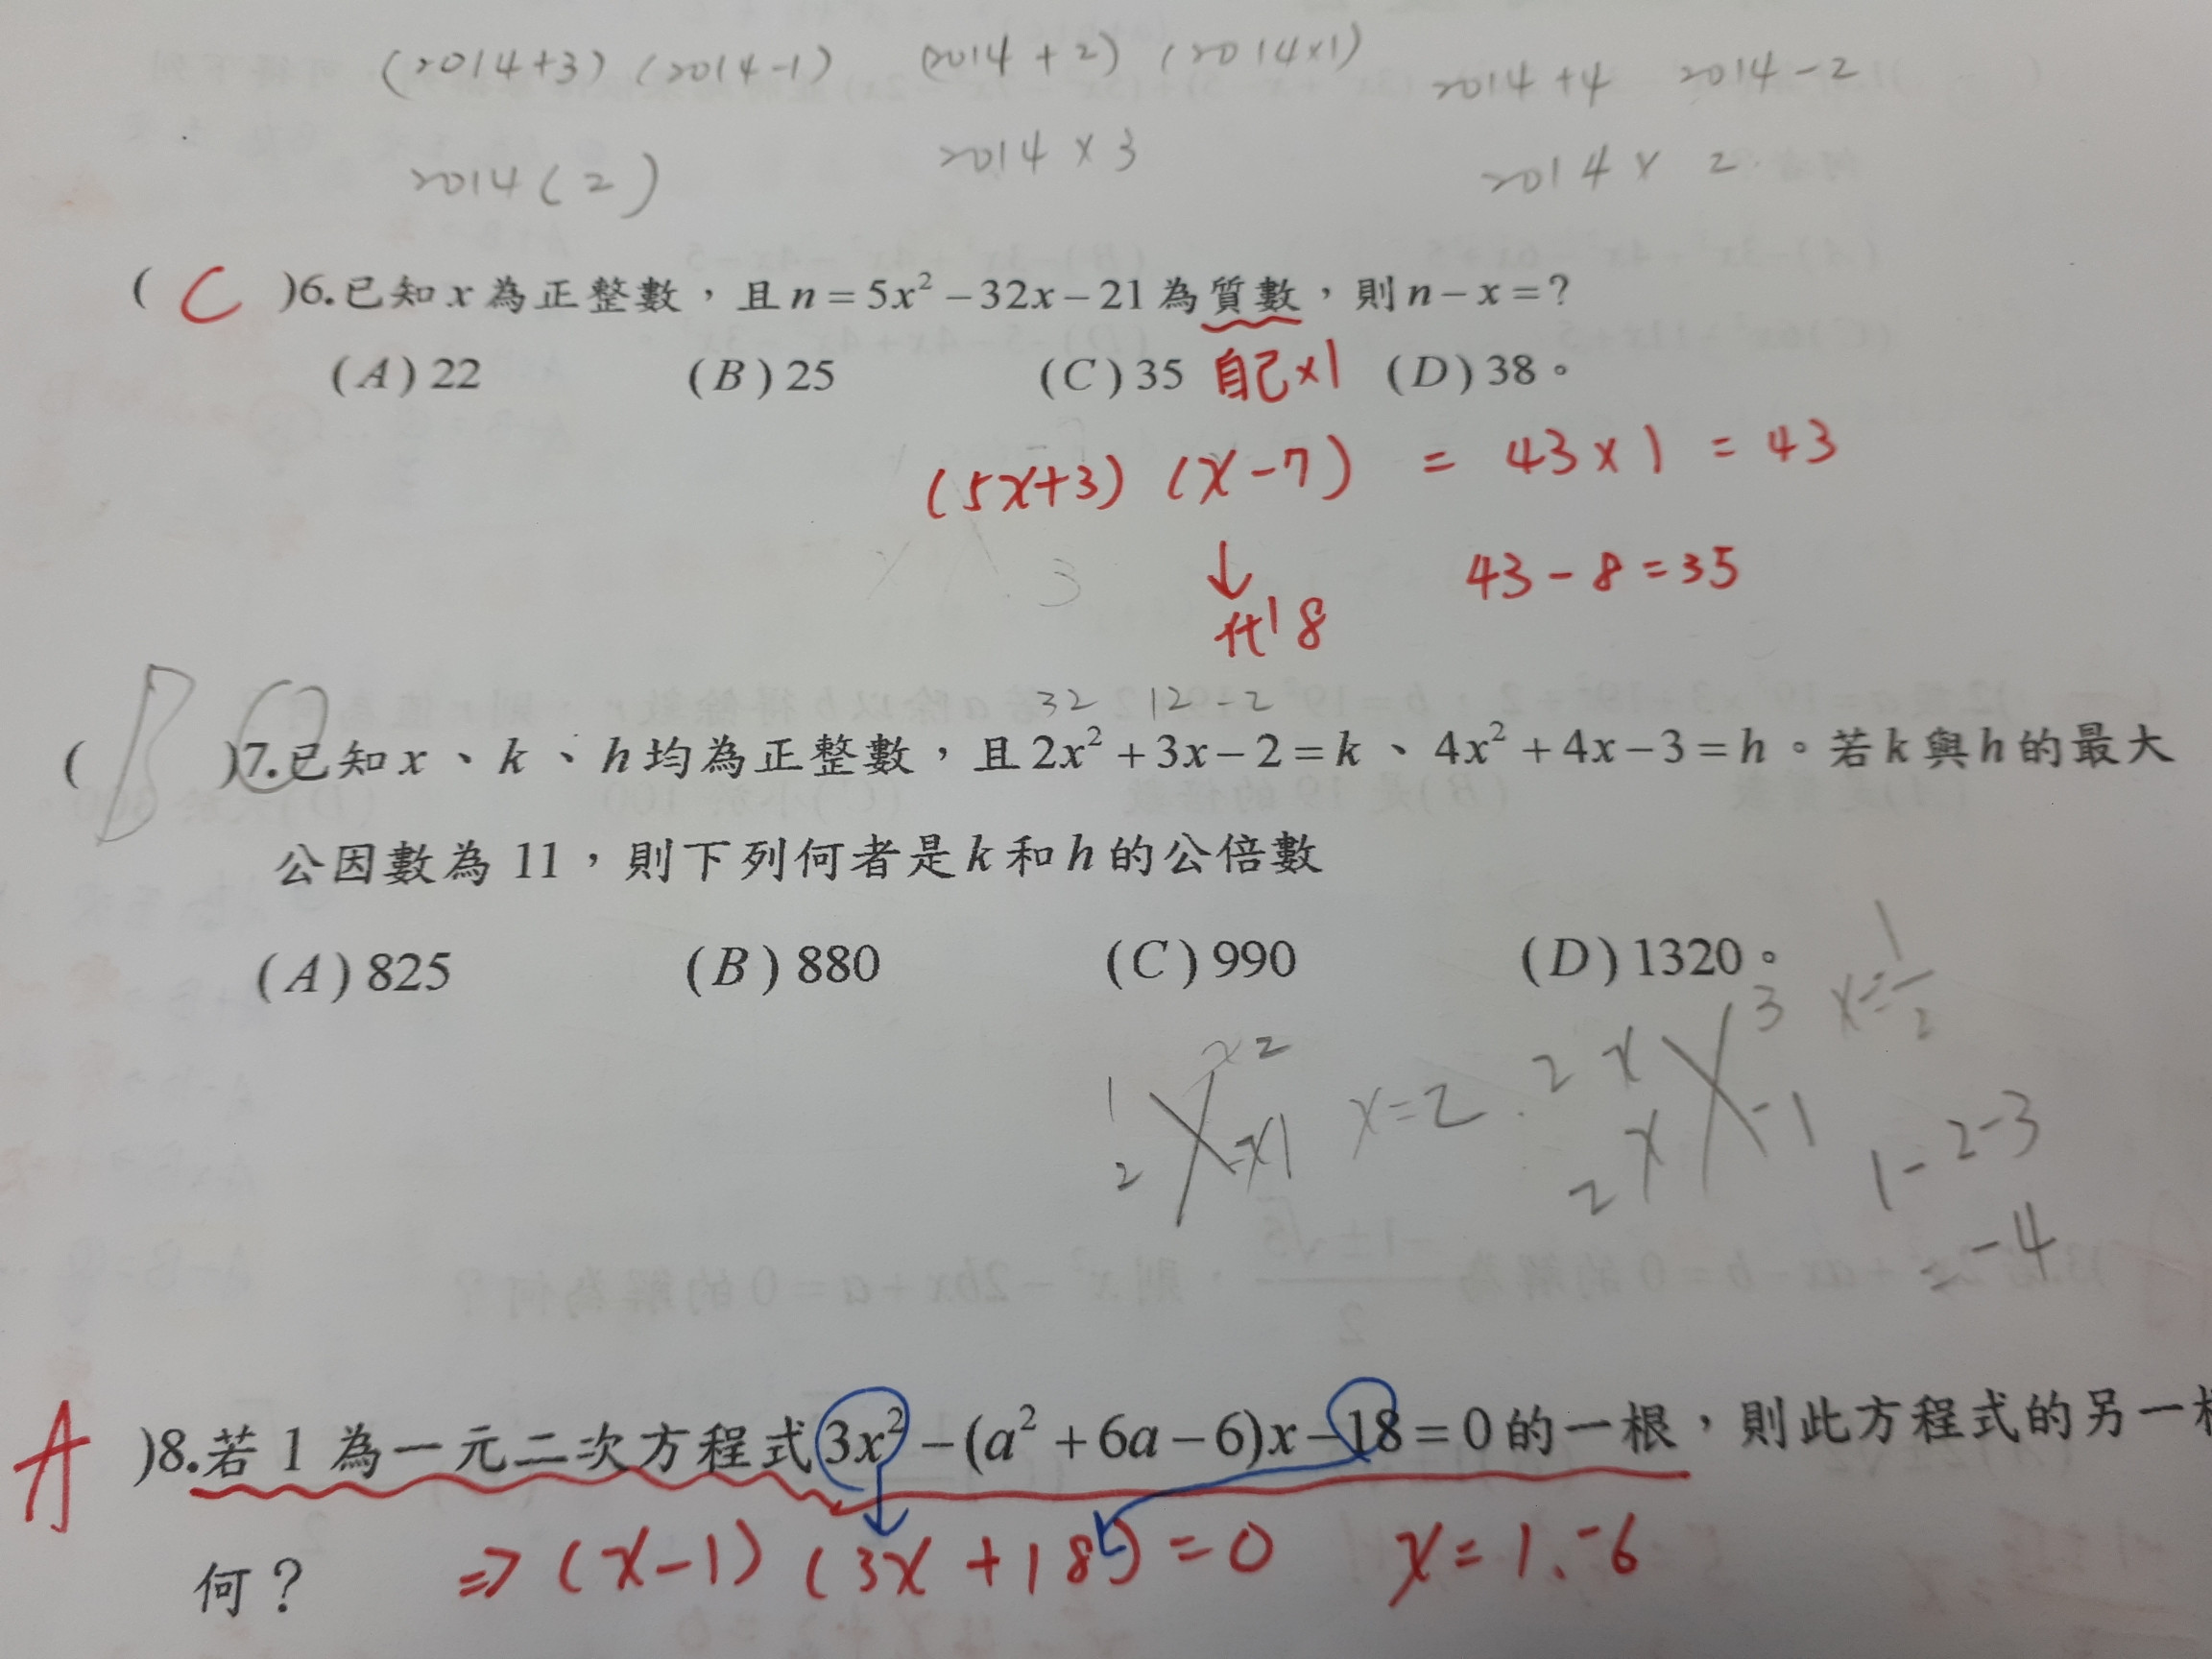 (2014+3) (2014-1) (2014+2) (2014×1) 2014+4 2014-2
2014(2) 2014×3 2014×2
( C )6.已知x為正整數，且n=5x²-32x-21為質數，則n-x=?
(A)22 (B)25 (C)35 自己×1 (D)38。
(5x+3)(x-7) = 43×1 = 43
3
↓
代8 43-8=35
32 12-2
( B )7.已知x、k、h均為正整數，且2x²+3x-2=k、4x²+4x-3=h。若k與h的最大
公因數為11，則下列何者是k和h的公倍數
(A)825 (B)880 (C)990 (D)1320。
1 x2 x=2 2x 3 x=1/2
2 -x1 2x -1 1-2-3
=-4
A )8.若1為一元二次方程式3x²-(a²+6a-6)x-18=0的一根，則此方程式的另一
何? ⇒(x-1)(3x+18)=0 x=1、-6